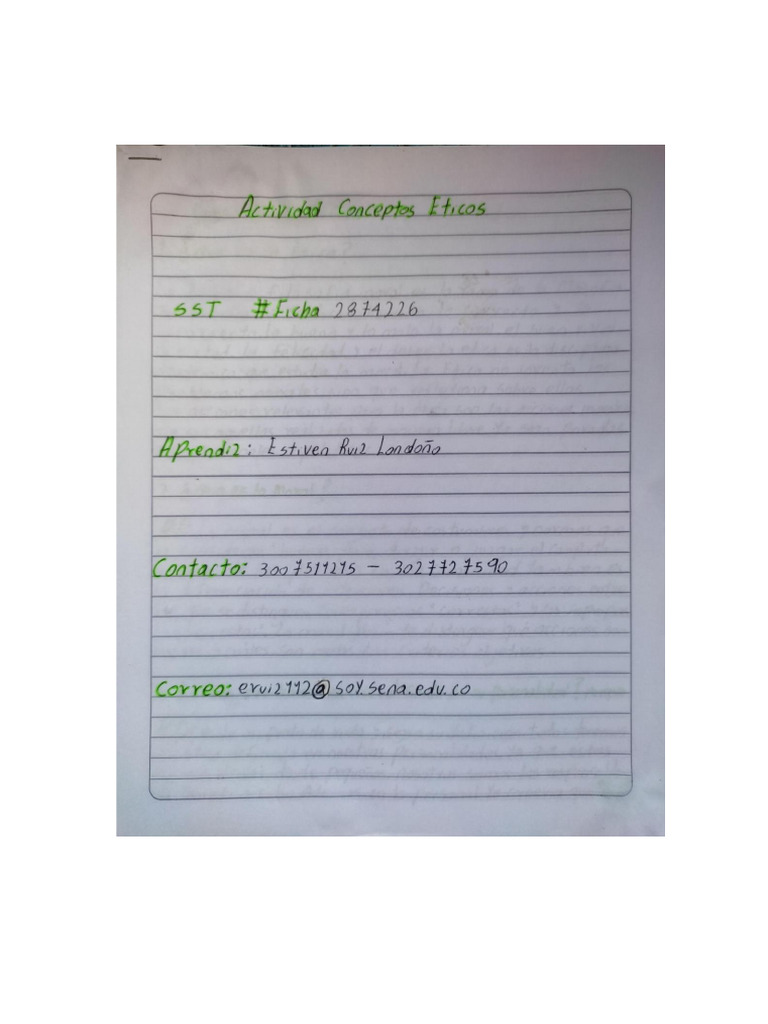 Actividad Conceptos Eticos
SST #Ficha 2874226
Aprendiz: Estiven Ruiz Londoño
Contacto: 3007511215 - 3027727590
Correo: eruiz112@soy.sena.edu.co